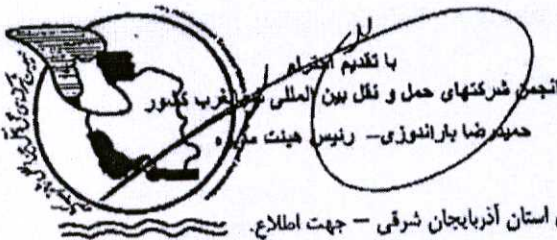 با تقدیم احترام
انجمن شرکتهای حمل و نقل بین المللی شمالغرب کشور
حمیدرضا باراندوزی – رئیس هیئت مدیره
استان آذربایجان شرقی – جهت اطلاع.